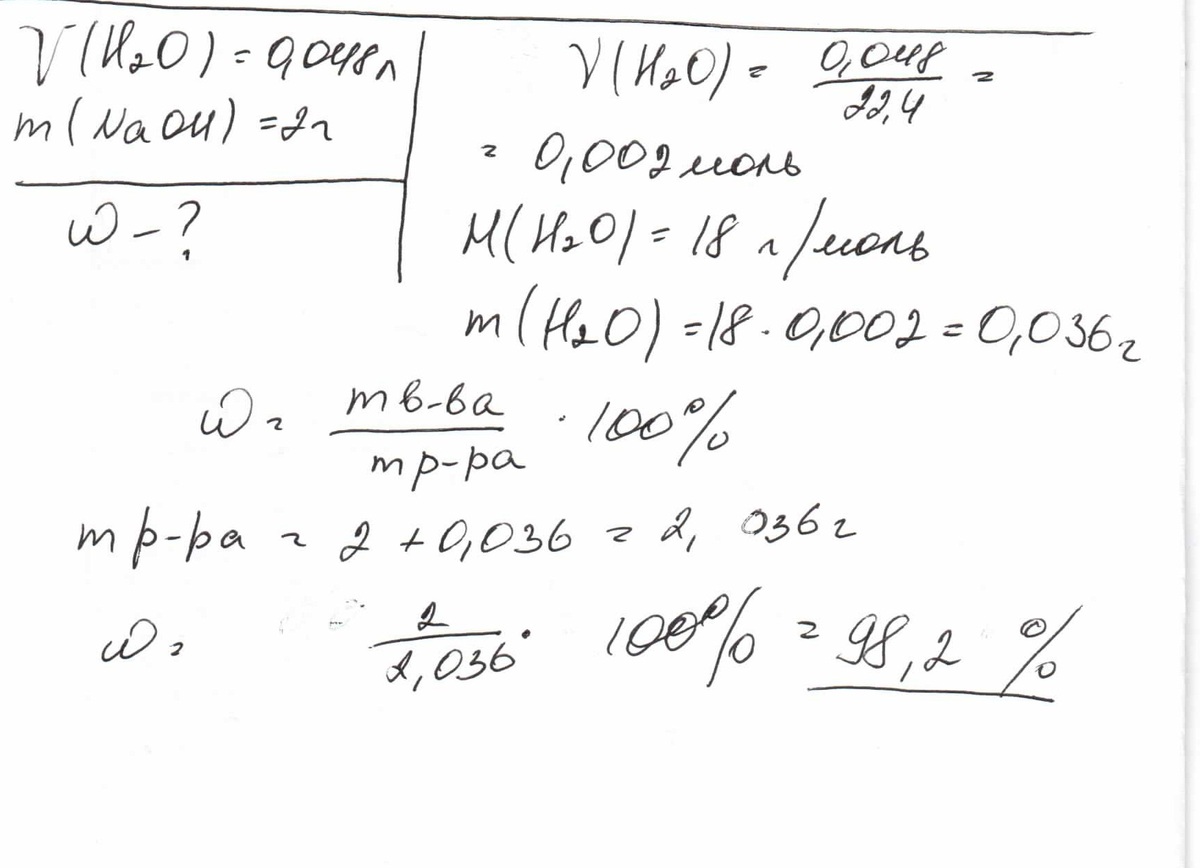 V(H₂O) = 0,048л
m(NaOH) = 2г
ω - ?
ν(H₂O) = 0,048/22,4 =
= 0,002 моль
M(H₂O) = 18 г/моль
m(H₂O) = 18 · 0,002 = 0,036 г
ω = m в-ва/m р-ра · 100%
m р-ра = 2 + 0,036 = 2,036 г
ω = 2/2,036 · 100% = 98,2 %